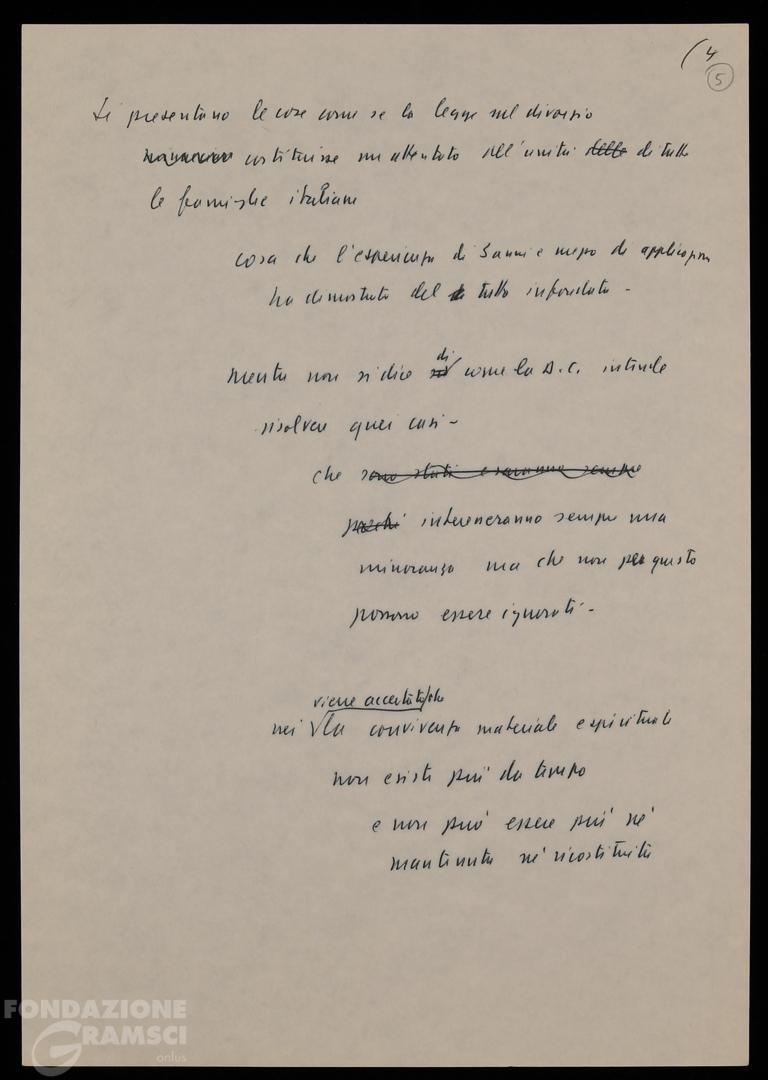 (4
5
Si presentano le cose come se la legge sul divorzio
costituisse un attentato all'unità delle di tutte
le famiglie italiane
cosa che l'esperienza di 3 anni e mezzo di applicazione
ha dimostrato del tutto infondata -
mentre non si dice di come la D.C. intende
risolvere quei casi -
che sono stati e saranno sempre
pochi interesseranno sempre una
minoranza ma che non per questo
possono essere ignorati -
viene accertato che
nei la convivenza materiale e spirituale
non esiste più da tempo
e non può essere più né
mantenuta né ricostituita
FONDAZIONE
GRAMSCI
onlus